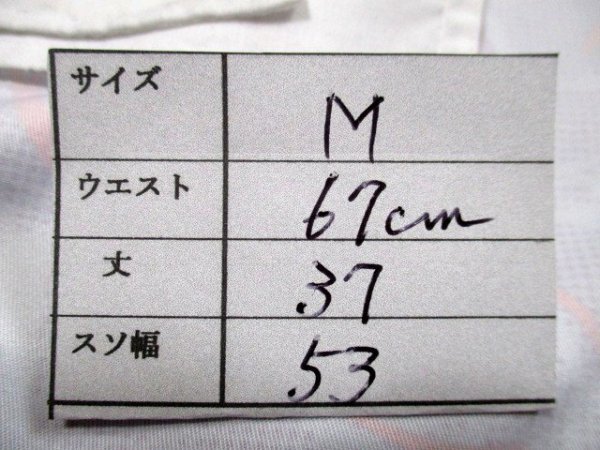 サイズ M
ウエスト 67cm
丈 37
スソ幅 53